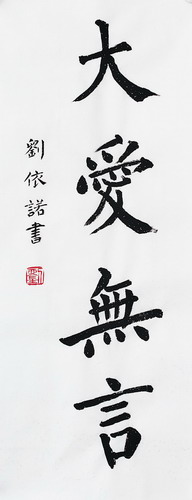 大愛無言
劉依諾書